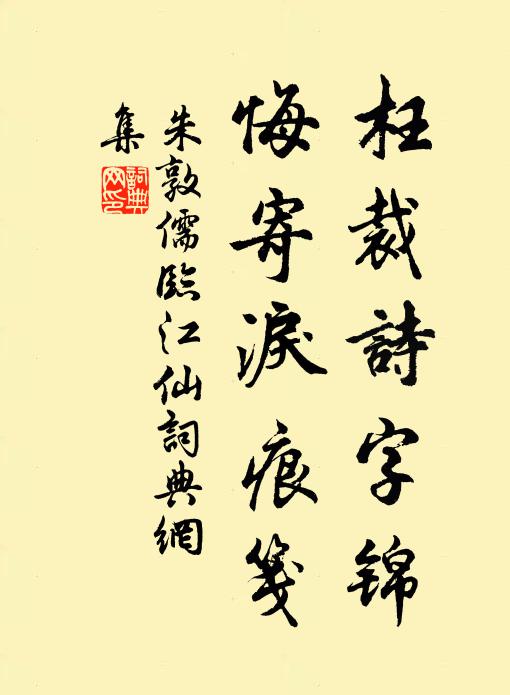 枉裁詩字錦
悔寄淚痕箋
朱敦儒臨江仙詞典網
集
詞典網印